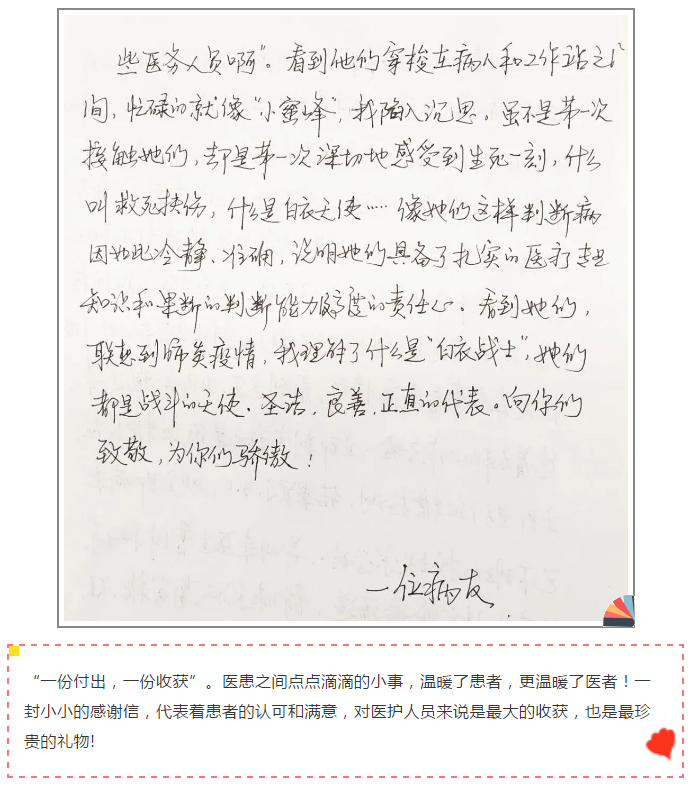 些医务人员啊”。看到他们穿梭在病人和工作站之
间，忙碌的就像“小蜜蜂”，我陷入沉思，虽不是第一次
接触她们，却是第一次深切地感受到生死一刻，什么
叫救死扶伤，什么是白衣天使……像她们这样判断病
因如此冷静、准确，说明她们具备了扎实的医疗专业
知识和果断的判断能力高度的责任心。看到她们，
联想到肺炎疫情，我理解了什么是“白衣战士”，她们
都是战斗的天使、圣洁，良善，正直的代表。向你们
致敬，为你们骄傲！
一位病友
“一份付出，一份收获”。医患之间点点滴滴的小事，温暖了患者，更温暖了医者！一
封小小的感谢信，代表着患者的认可和满意，对医护人员来说是最大的收获，也是最珍
贵的礼物!